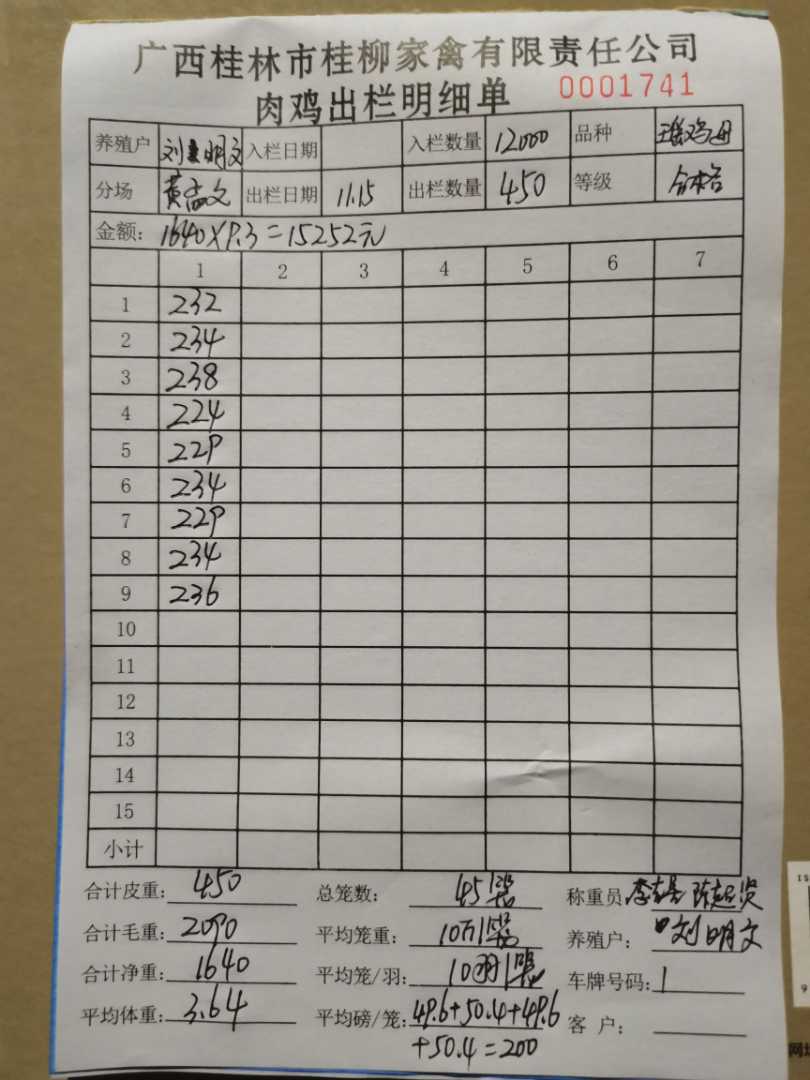 广西桂林市桂柳家禽有限责任公司
肉鸡出栏明细单 0001741
养殖户 刘明文 入栏日期 入栏数量 12000 品种 瑶鸡母
分场 黄志文 出栏日期 11.15 出栏数量 450 等级 合格
金额: 1640×9.3=15252元
1 2 3 4 5 6 7
1 232
2 234
3 238
4 224
5 229
6 234
7 229
8 234
9 236
10
11
12
13
14
15
小计
合计皮重: 450 总笼数: 45 称重员:
合计毛重: 2090 平均笼重: 10 养殖户: 刘明文
合计净重: 1640 平均笼/羽: 10羽 车牌号码: 1
平均体重: 3.64 平均磅/笼: 49.6+50.4+49.6 客 户:
+50.4=200
网址